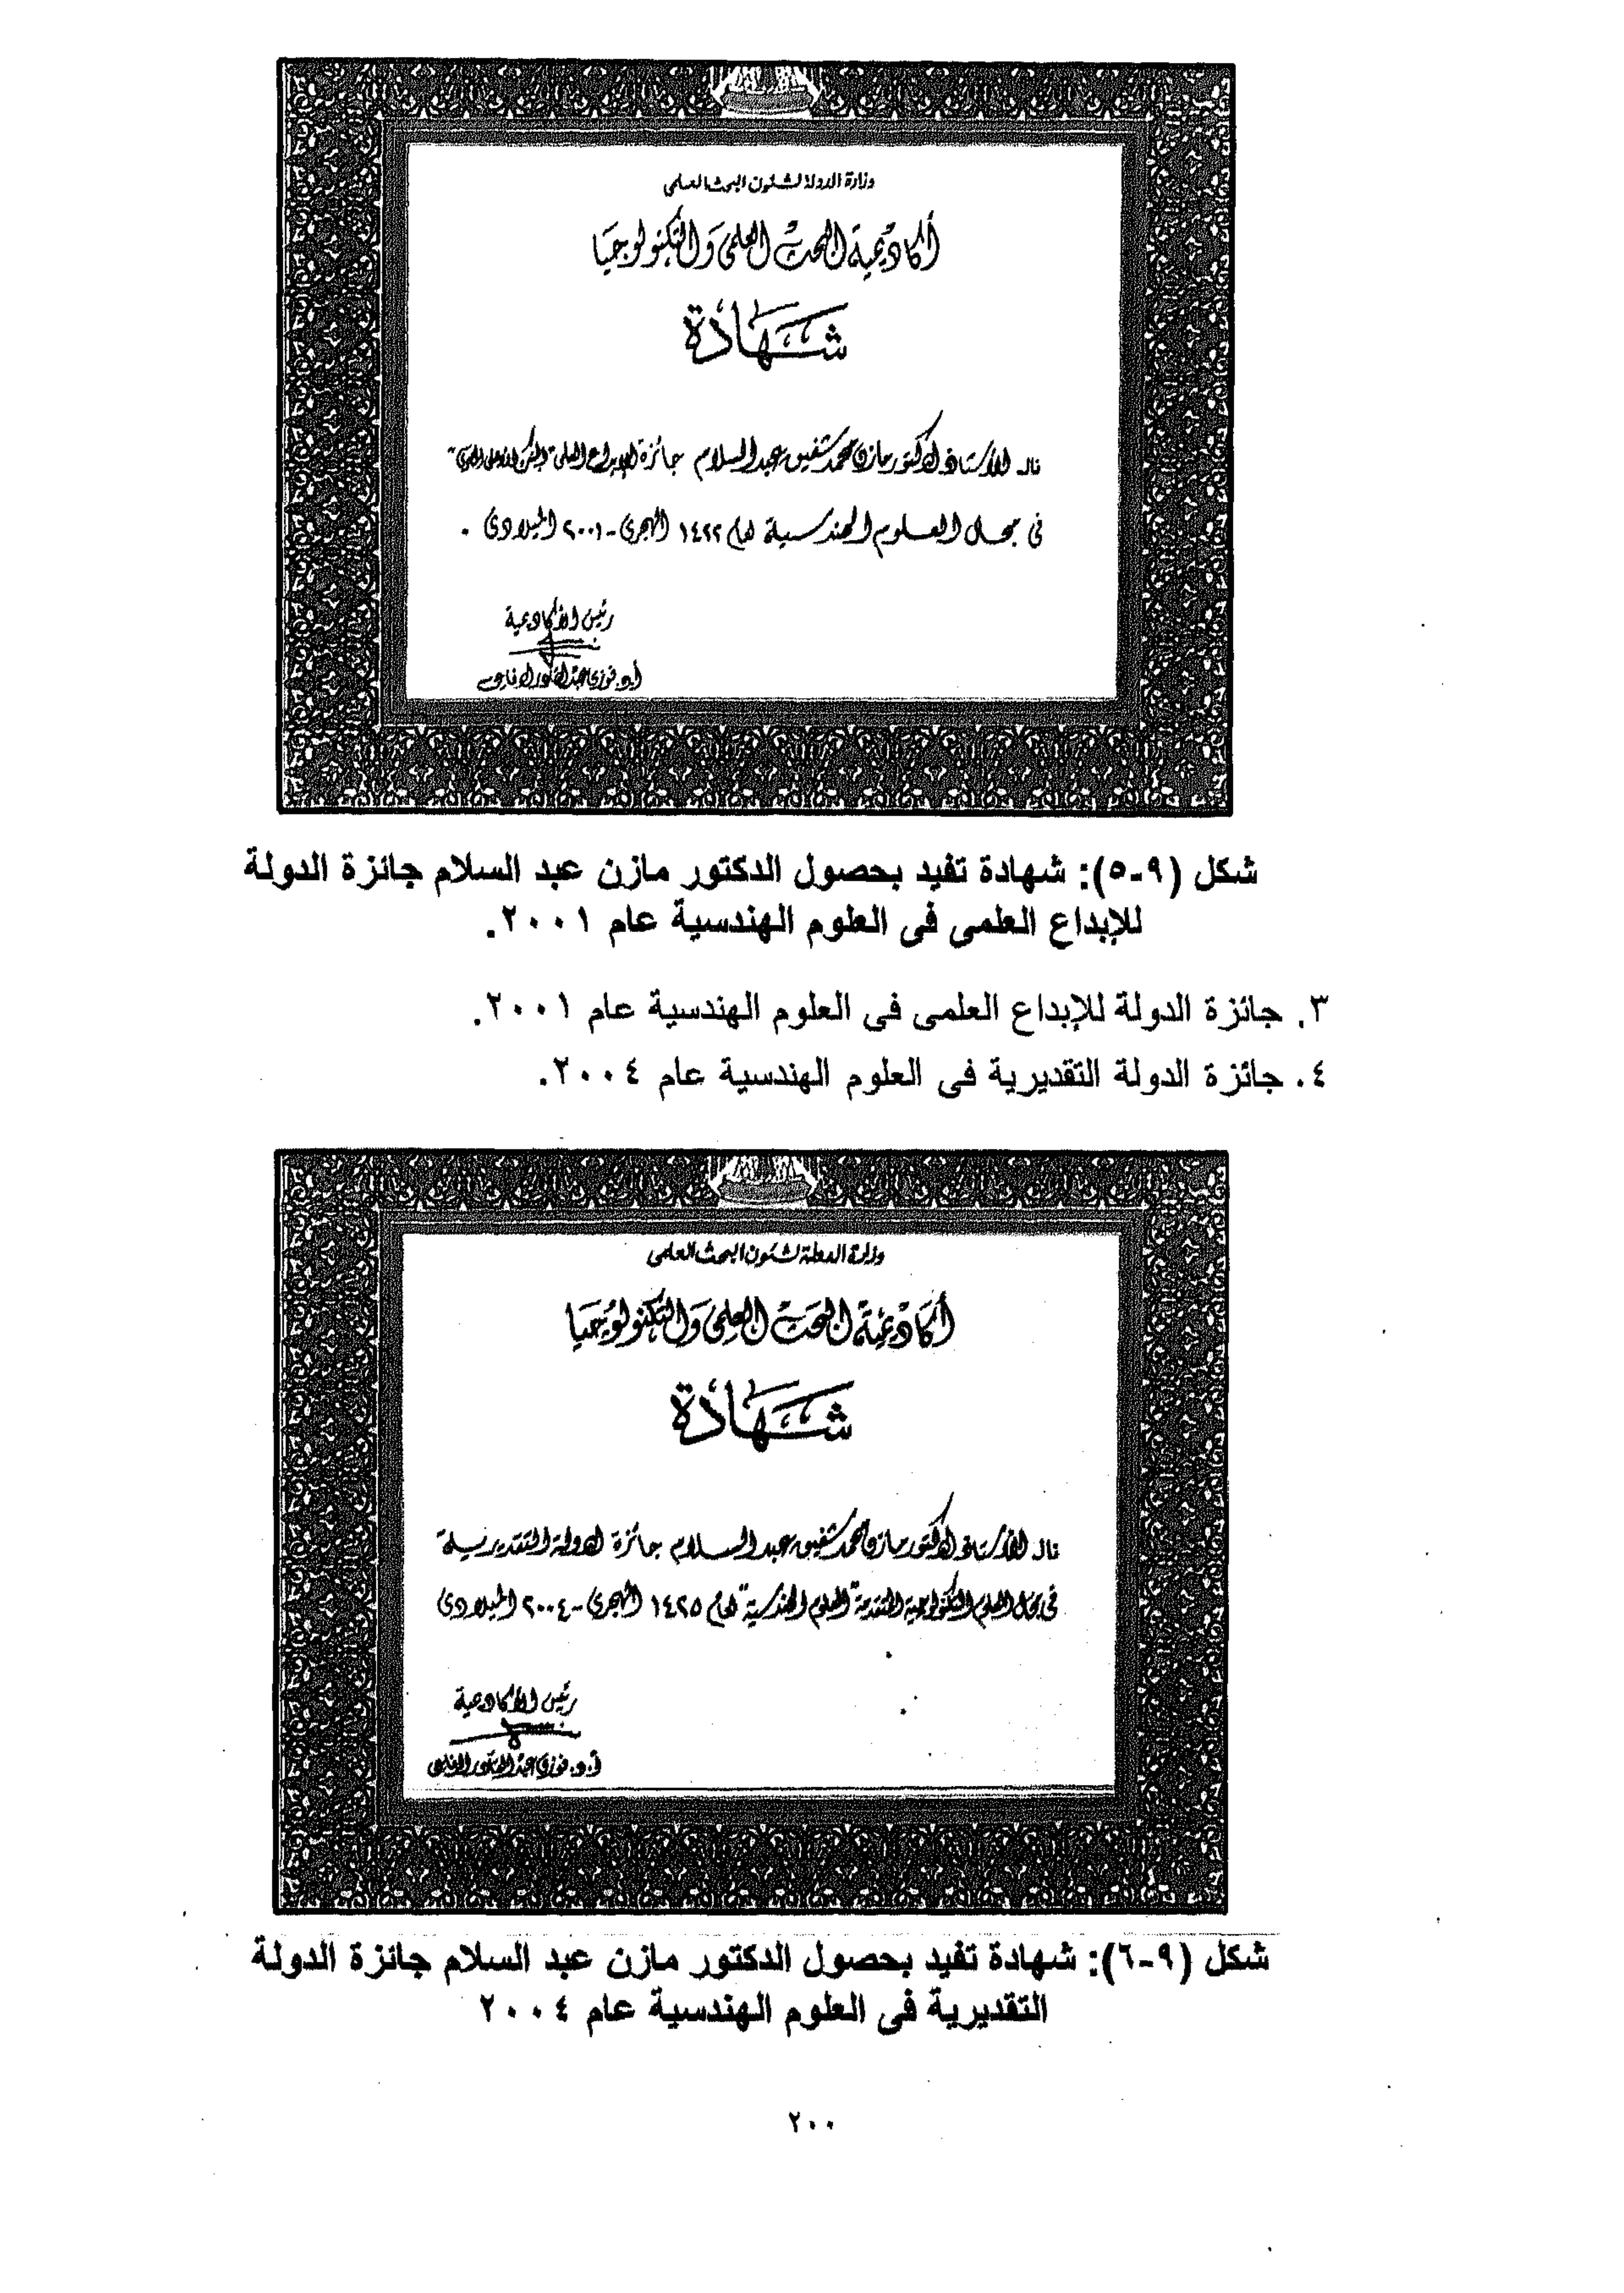 وزارة الدولة لشئون البحث العلمى
أكاديمية البحث العلمى والتكنولوجيا
شهادة
نال الأستاذ الدكتور مازن محمد شفيق عبد السلام جائزة الإبداع العلمى
فى مجال العلوم الهندسية لعام ١٤٢٢ الهجرى - ٢٠٠١ الميلادى .
رئيس الأكاديمية
أ.د. فوزى عبد القادر الرفاعى
شكل (٩-٥): شهادة تفيد بحصول الدكتور مازن عبد السلام جائزة الدولة
للإبداع العلمى فى العلوم الهندسية عام ٢٠٠١.
٣. جائزة الدولة للإبداع العلمى فى العلوم الهندسية عام ٢٠٠١.
٤. جائزة الدولة التقديرية فى العلوم الهندسية عام ٢٠٠٤.
وزارة الدولة لشئون البحث العلمى
أكاديمية البحث العلمى والتكنولوجيا
شهادة
نال الأستاذ الدكتور مازن محمد شفيق عبد السلام جائزة الدولة التقديرية
فى مجال العلوم التكنولوجية المتقدمة "العلوم الهندسية" لعام ١٤٢٥ الهجرى - ٢٠٠٤ الميلادى
رئيس الأكاديمية
أ.د. فوزى عبد القادر الرفاعى
شكل (٩-٦): شهادة تفيد بحصول الدكتور مازن عبد السلام جائزة الدولة
التقديرية فى العلوم الهندسية عام ٢٠٠٤
٢٠٠